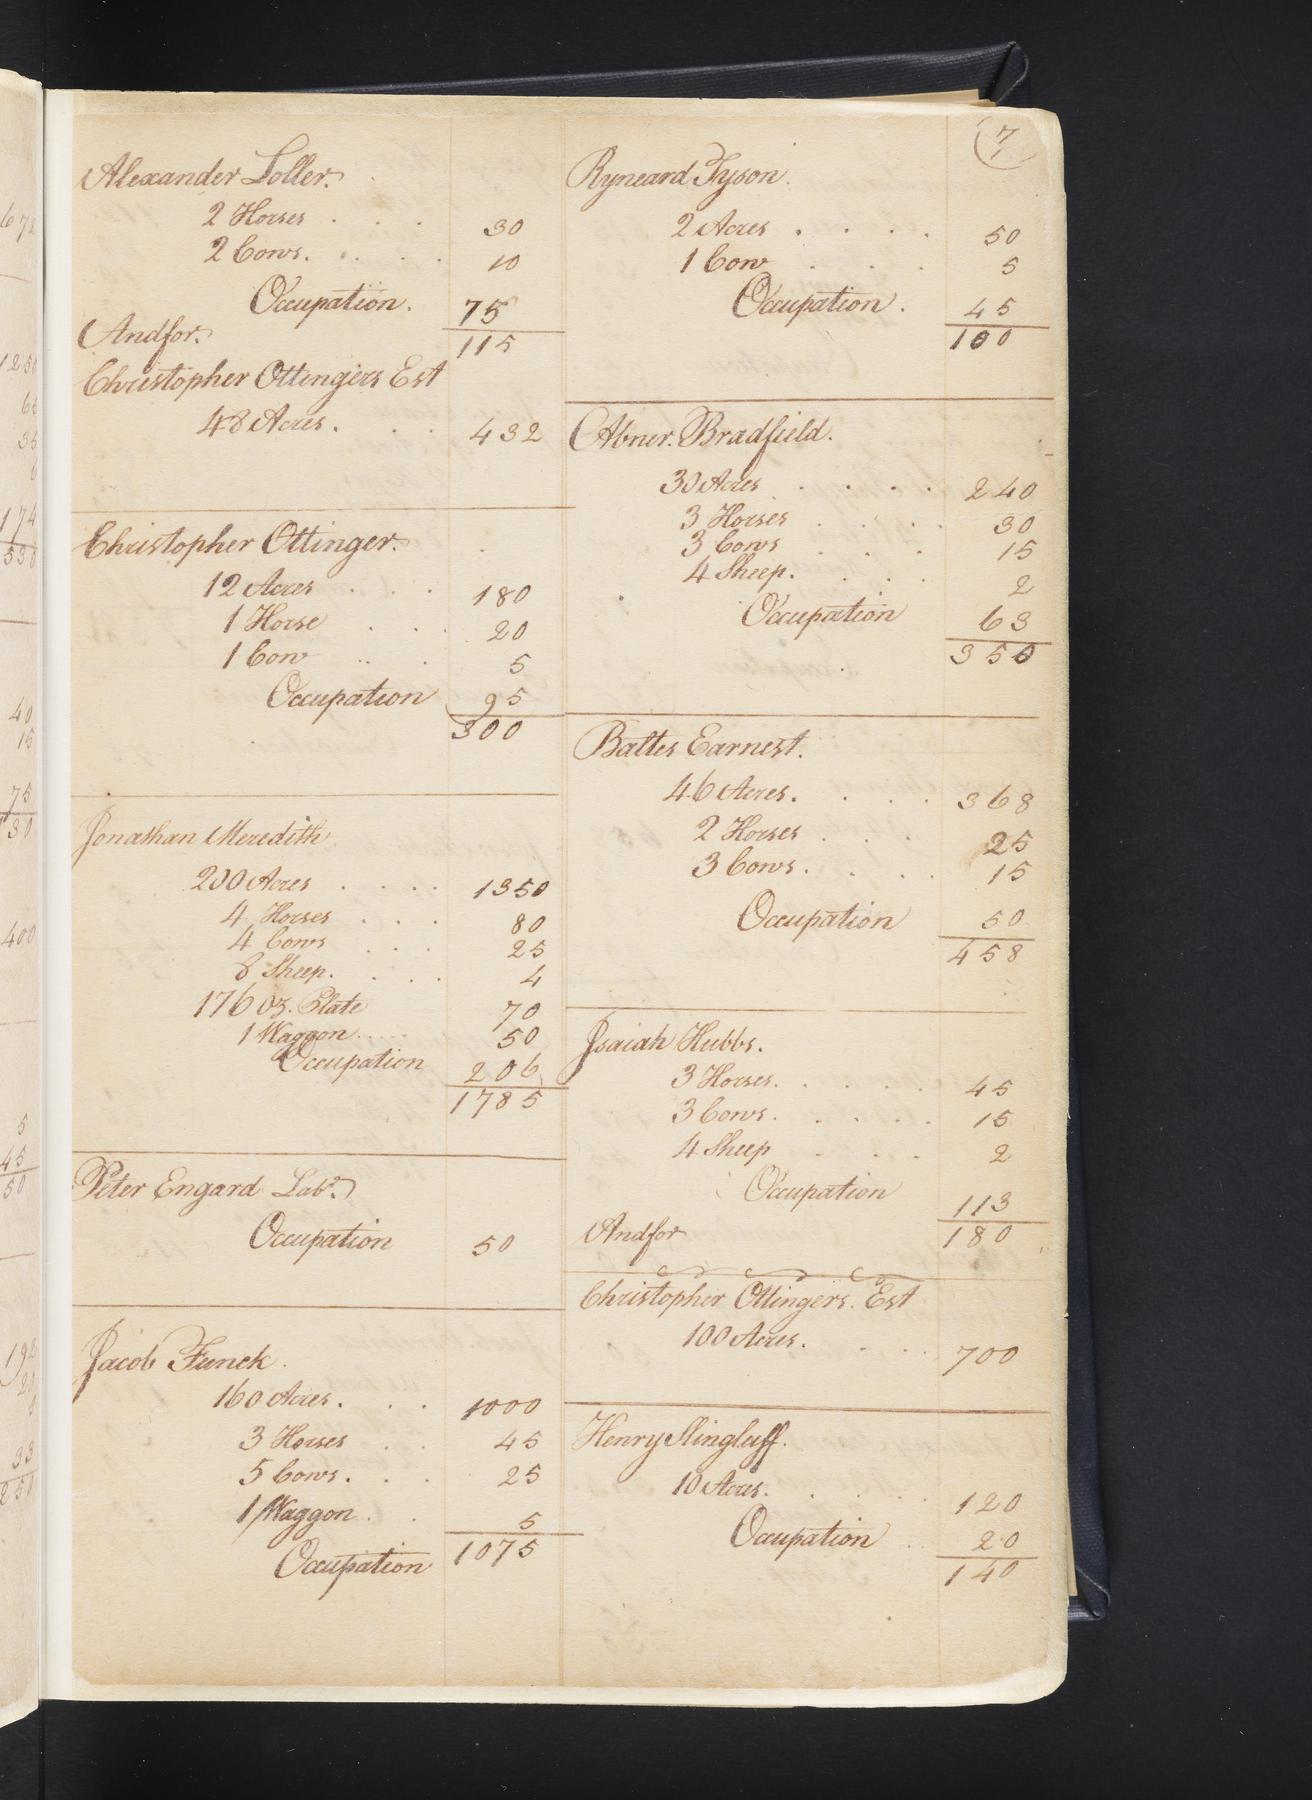 7
Alexander Loller.
2 Horses . . . 30
2 Cows. . . . 10
Occupation. 75
115
Andfor.
Christopher Ottingers Est
48 Acres. . . 432
Christopher Ottinger.
12 Acres . . . 180
1 Horse . . . 20
1 Cow . . . 5
Occupation 95
300
Jonathan Meredith
200 Acres . . . . 1350
4 Horses . . . 80
4 Cows . . . 25
8 Sheep. . . . 4
176 oz. Plate 70
1 Waggon . . . 50
Occupation 206
1785
Peter Engard Labr.
Occupation 50
Jacob Funck.
160 Acres. . . 1000
3 Horses . . 45
5 Cows. . . 25
1 Waggon . . 5
Occupation 1075
Ryneard Tyson.
2 Acres . . . . 50
1 Cow . . . 5
Occupation. 45
100
Abner. Bradfield.
30 Acres . . . . 240
3 Horses . . . 30
3 Cows . . . 15
4 Sheep. . . . 2
Occupation 63
350
Baltes Earnest.
46 Acres. . . . 368
2 Horses . . . 25
3 Cows. . . . 15
Occupation 50
458
Isaiah Hubbs.
3 Horses. . . . . 45
3 Cows. . . . . 15
4 Sheep . . . 2
Occupation 113
180
Andfor
Christopher Ottingers. Est
100 Acres. . . . 700
Henry Slingluff.
10 Acres. . . . . 120
Occupation . 20
140